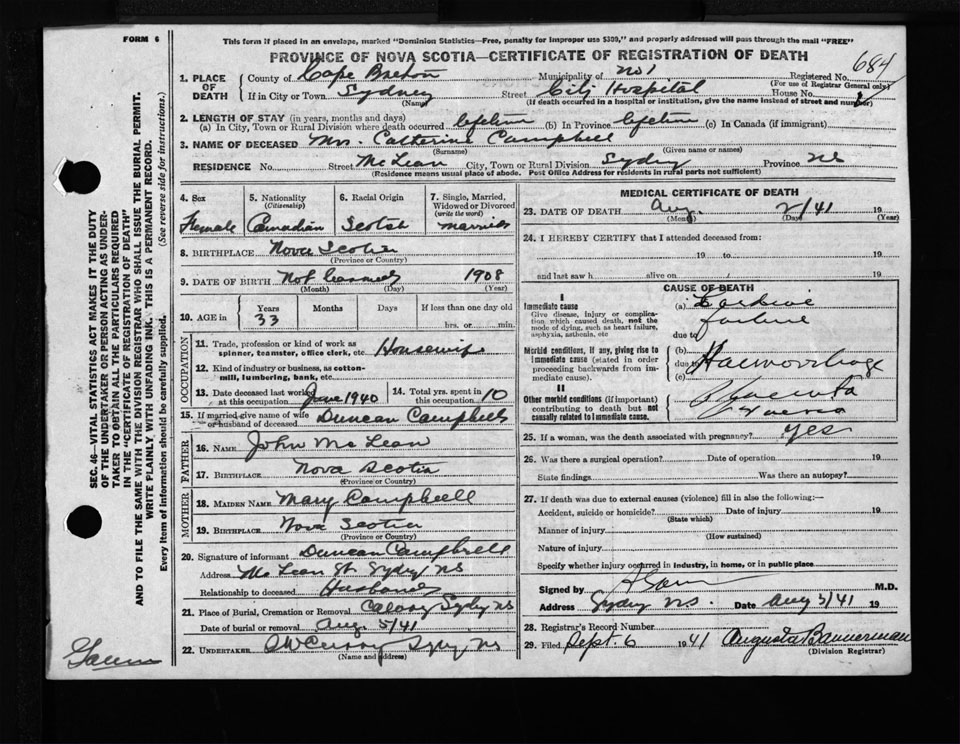 FORM 6
This form if placed in an envelope, marked "Dominion Statistics—Free, penalty for improper use $300," and properly addressed will pass through the mail "FREE"
PROVINCE OF NOVA SCOTIA—CERTIFICATE OF REGISTRATION OF DEATH
684
1. PLACE OF DEATH
County of Cape Breton Municipality of No 1 Registered No.
(For use of Registrar General only)
If in City or Town Sydney Street City Hospital House No.
(Name) (If death occurred in a hospital or institution, give the name instead of street and number)
2. LENGTH OF STAY (in years, months and days)
(a) In City, Town or Rural Division where death occurred lifetime (b) In Province lifetime (c) In Canada (if immigrant)
3. NAME OF DECEASED Mrs. Catherine Campbell
(Surname) (Given name or names)
RESIDENCE No. Street McLean City, Town or Rural Division Sydney Province NS
(Residence means usual place of abode. Post Office Address for residents in rural parts not sufficient)
4. Sex
Female
5. Nationality
(Citizenship)
Canadian
6. Racial Origin
Scotch
7. Single, Married, Widowed or Divorced
(write the word)
Married
8. BIRTHPLACE Nova Scotia
(Province or Country)
9. DATE OF BIRTH Not learned 1908
(Month) (Day)
10. AGE in Years Months Days If less than one day old
33 hrs. or min.
OCCUPATION
11. Trade, profession or kind of work as spinner, teamster, office clerk, etc. Housewife
12. Kind of industry or business, as cotton-mill, lumbering, bank, etc.
13. Date deceased last worked at this occupation June 1940 14. Total yrs. spent in this occupation 10
15. If married give name of wife or husband of deceased Duncan Campbell
FATHER
16. NAME John McLean
17. BIRTHPLACE Nova Scotia
(Province or Country)
MOTHER
18. MAIDEN NAME Mary Campbell
19. BIRTHPLACE Nova Scotia
(Province or Country)
20. Signature of informant Duncan Campbell
Address McLean St. Sydney NS
Relationship to deceased Husband
21. Place of Burial, Cremation or Removal Calvary Sydney NS
Date of burial or removal Aug. 5/41
22. UNDERTAKER Sydney NS
(Name and address)
MEDICAL CERTIFICATE OF DEATH
23. DATE OF DEATH Aug. 2/41 19
(Month) (Day) (Year)
24. I HEREBY CERTIFY that I attended deceased from:
19 to 19
and last saw h alive on 19
CAUSE OF DEATH
I
Immediate cause
Give disease, injury or complication which caused death, not the mode of dying, such as heart failure, asphyxia, asthenia, etc
(a) Cardiac failure
due to
Morbid conditions, if any, giving rise to immediate cause (stated in order proceeding backwards from immediate cause).
(b)
due to Haemorrhage
(c)
II
Other morbid conditions (if important) contributing to death but not causally related to immediate cause.
Placenta
25. If a woman, was the death associated with pregnancy? yes
26. Was there a surgical operation? Date of operation 19
State findings Was there an autopsy?
27. If death was due to external causes (violence) fill in also the following:—
Accident, suicide or homicide? Date of injury 19
(State which)
Manner of injury
(How sustained)
Nature of injury
Specify whether injury occurred in industry, in home, or in public place
Signed by M.D.
Address Sydney NS. Date Aug 3/41 19
28. Registrar's Record Number
29. Filed Sept. 6 1941 Augusta Bannerman
(Division Registrar)
SEC. 46—VITAL STATISTICS ACT MAKES IT THE DUTY
OF THE UNDERTAKER OR PERSON ACTING AS UNDER-
TAKER TO OBTAIN ALL THE PARTICULARS REQUIRED
IN THE "CERTIFICATE OF REGISTRATION OF DEATH"
AND TO FILE THE SAME WITH THE DIVISION REGISTRAR WHO SHALL ISSUE THE BURIAL PERMIT.
WRITE PLAINLY WITH UNFADING INK. THIS IS A PERMANENT RECORD.
Every item of information should be carefully supplied. (See reverse side for instructions.)